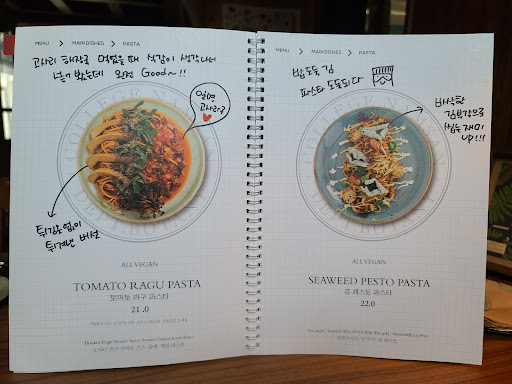 MENU > MAIN DISHES > PASTA
고사리 해장국 먹었을 때 식감이 생각나서
넣어 봤는데 완전 Good~!!
일명
고사라구
튀김옷 없이
튀겨낸 버섯
ALL VEGAN
TOMATO RAGU PASTA
토마토 라구 파스타
21.0
MENU > MAIN DISHES > PASTA
밥도둑 김
파스타 도둑되다
바삭한
김부각으로
씹는 재미
UP!!!
ALL VEGAN
SEAWEED PESTO PASTA
김 페스토 파스타
22.0